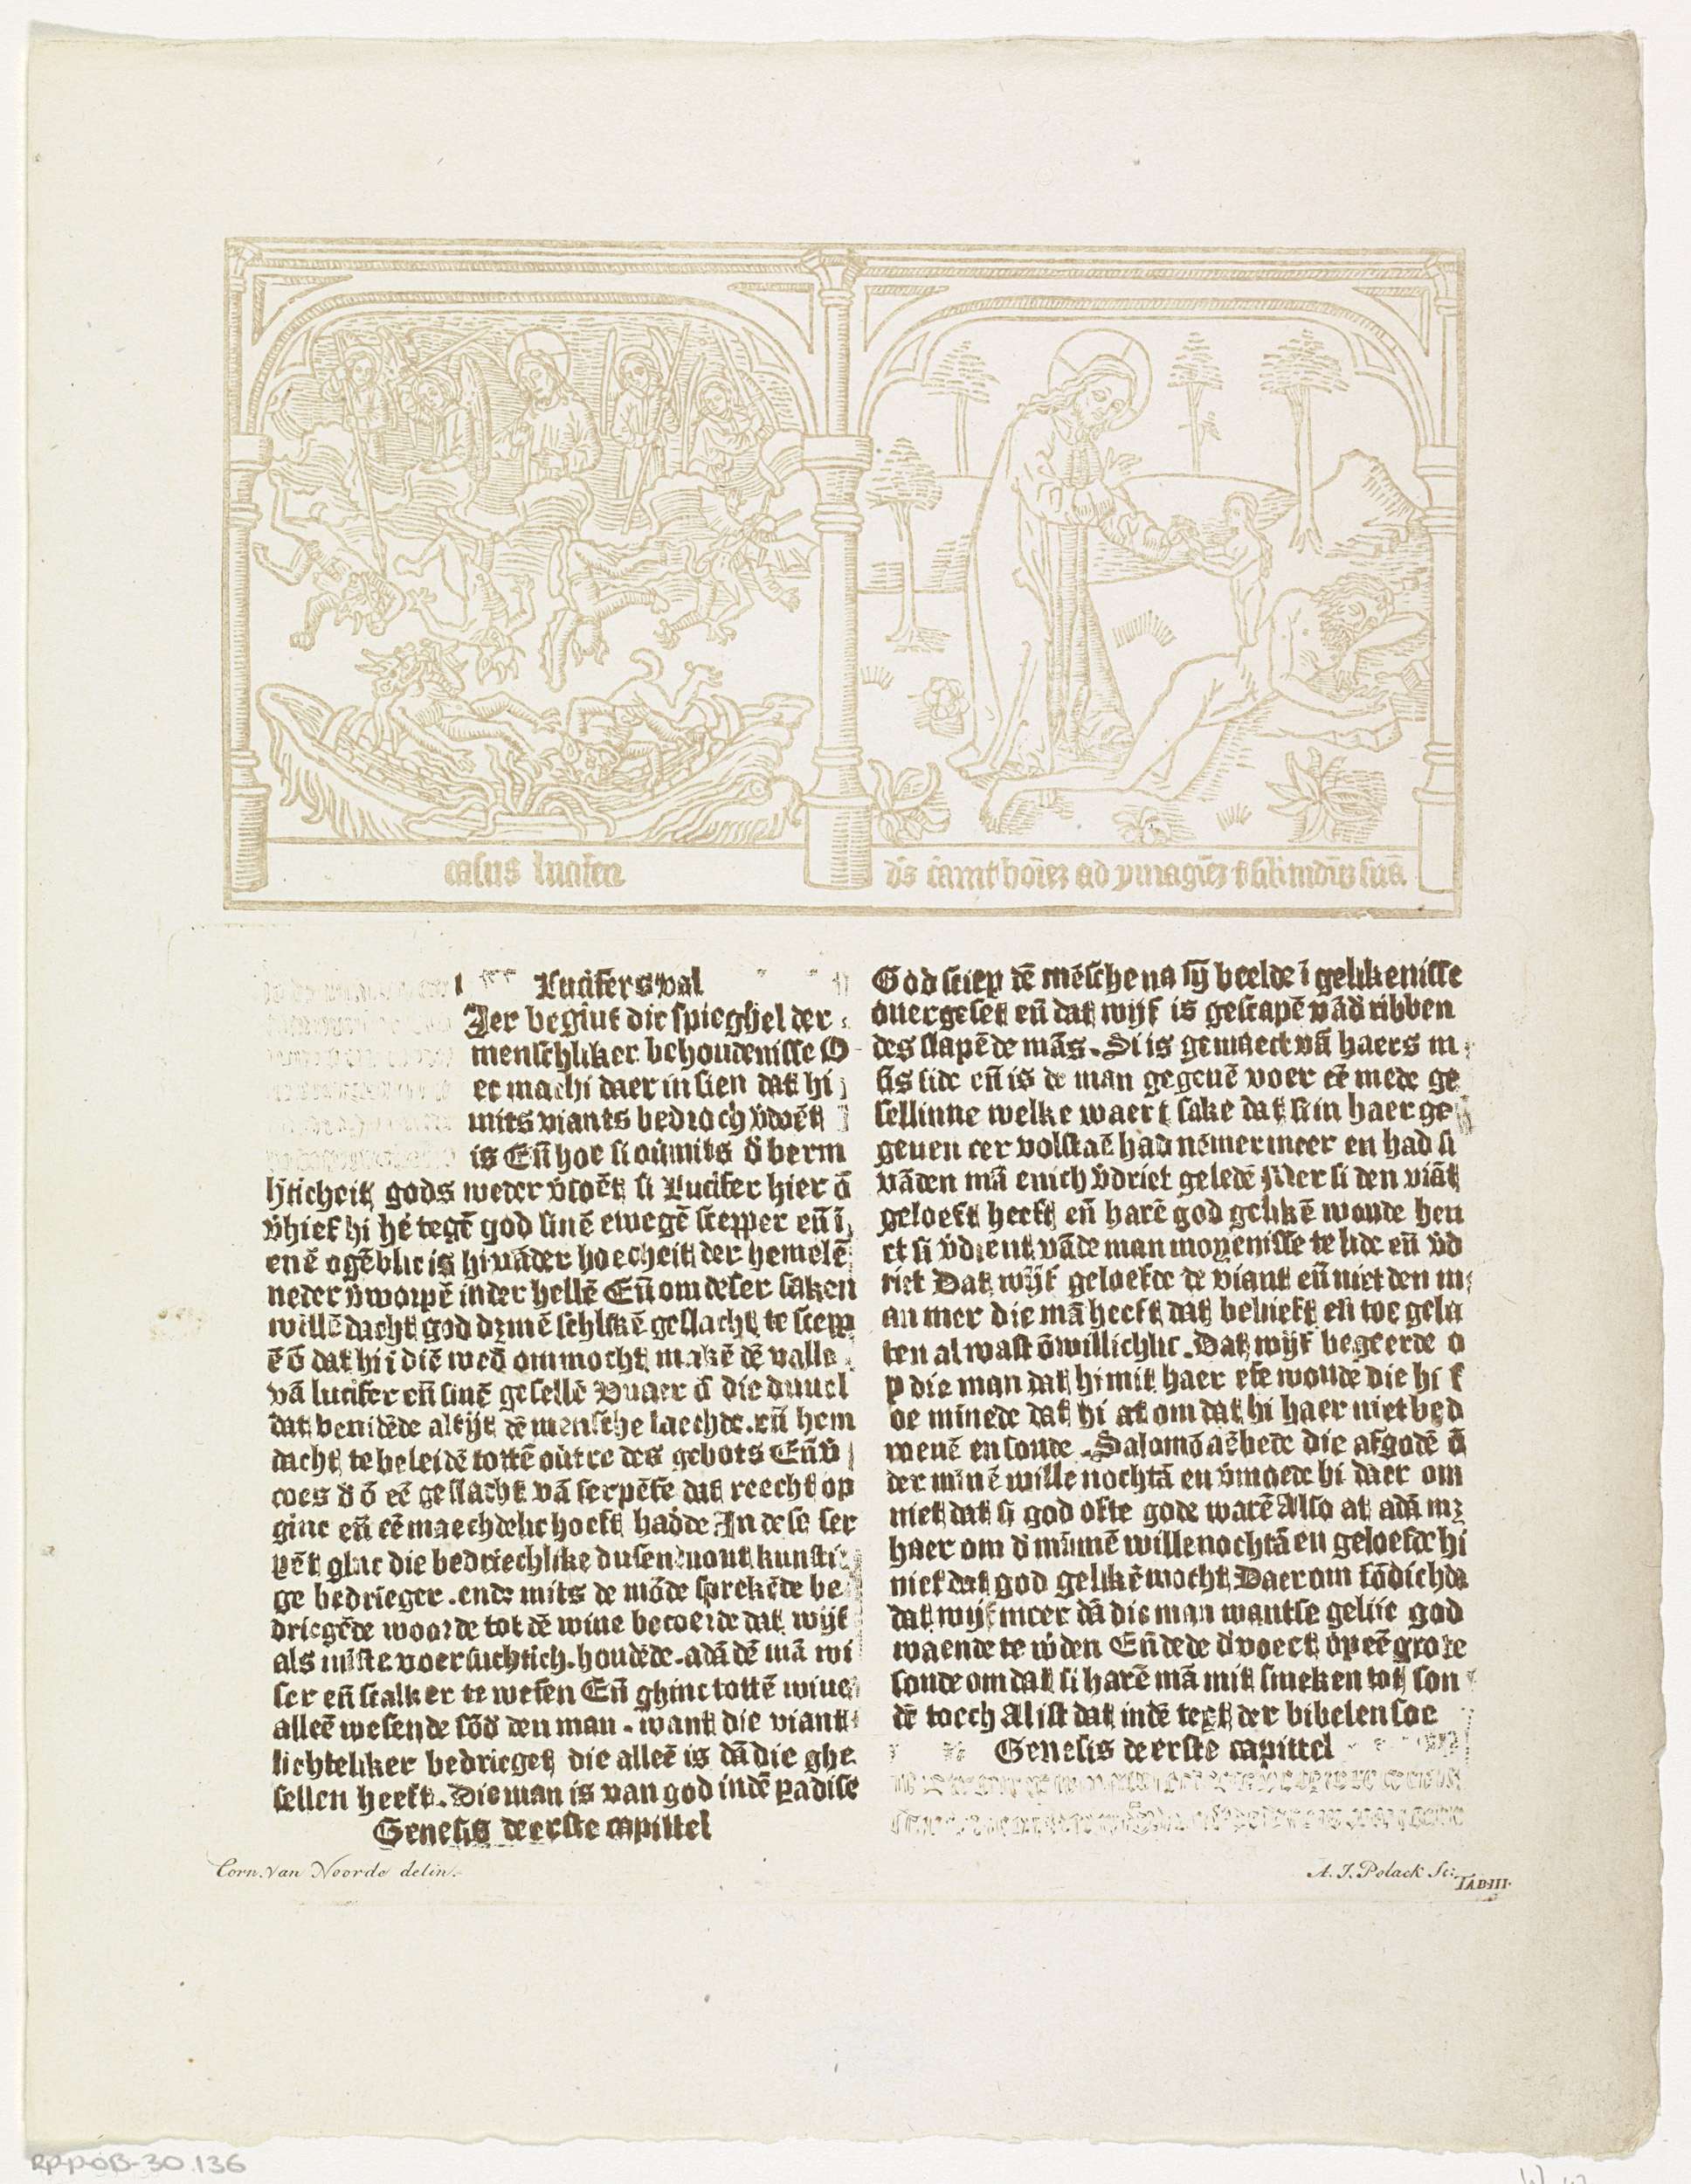 casus luciferi
dn̄s c̄amt hoīeȝ ad ymagīeȝ ⁊ silitudīeȝ suā
Lucifers val
Jer begīnt die spieghel der
menschliker behoudenisse O
er machi daer in sien dat hi
mits viants bedroch v̄doēt
is En̄ hoe si oūmits d̄ berm
h̄ticheit gods weder v̄soēt si Lucifer hier ō
v̄hief hi hē tegē god sinē ewegē scepper en̄ ī
enē ogēblic is hi vāder hoecheit der hemelē
neder v̄worpē inder hellē En̄ om deser saken
willē dacht god dȝ mēschlikē geslacht te scepp
ē ō dat hi i diē wed̄ om mocht makē dē valle
vā lucifer en̄ sinē gesellē Duaer ō die duuel
dat benidēde altijt dē mensche laechde. en̄ hem
dacht te beleidē tottē oūtre des gebots En̄ v̄
coes d̄ ō eē geslacht vā serpēte dat reecht op
ginc en̄ eē maechdelic hoeft hadde In dese ser
pēt glac die bedriechlike dusentuout kunsti
ge bedrieger. ende mits de mōde sprekēde be
driegēde woorde tot dē wiue becoerde dat wijf
als miste voersichtich. houdēde. adā dē mā wi
ser en̄ scalker te wesen En̄ ghinc tottē wiue
alleē wesende sōd̄ den man. want die viant
lichteliker bedrieget die alleē is dā die ghe
sellen heeft. Die man is van god indē padise
Genesis de erste capittel
God sciep dē mēsche na sij̄ beelde ī gelikenisse
ouergeset en̄ dat wijf is gescapē vād̄ ribben
des slapēde mās. Si is gemaect vā haers m
ās side en̄ is de man gegeuē voer eē mede ge
sellinne welke waert sake dat si in haer ge
geuen eer volstaē had nēmermeer en had si
vāden mā enich v̄driet geledē Mer si den viāt
geloeft heeft en̄ harē god gelikē woude heu
et si v̄dient vāde man moyenisse te lidē en̄ v̄d
riet Dat wijf geloefde de viant en̄ niet den m
an mer die mā heeft dat belieft en̄ toe gela
ten al wast ōwillichlic. Dat wijf begeerde o
p die man dat hi mit haer ete woude die hi s
oe minede dat hi at om dat hi haer niet bed
wenē en soude. Salomō aēbede die afgodē ō
der minē wille nochtā en v̄moede hi daer om
niet dat si god ofte gode warē Also at adā mȝ
haer om d̄ minnē wille nochtā en geloefde hi
niet dat god gelikē mocht Daer om sōdichde
dat wijf meer dā die man want se gelijc god
waende te wden En̄ dede d̄ voect op eē grote
sonde om dat si harē mā mit smeken tot son
dē toech Al ist dat indē text der bibelen soe
Genesis de erste capittel
Corn. van Noorde delin.
A. J. Polack Sc:
TAB. III.
RP-P-OB-30.136